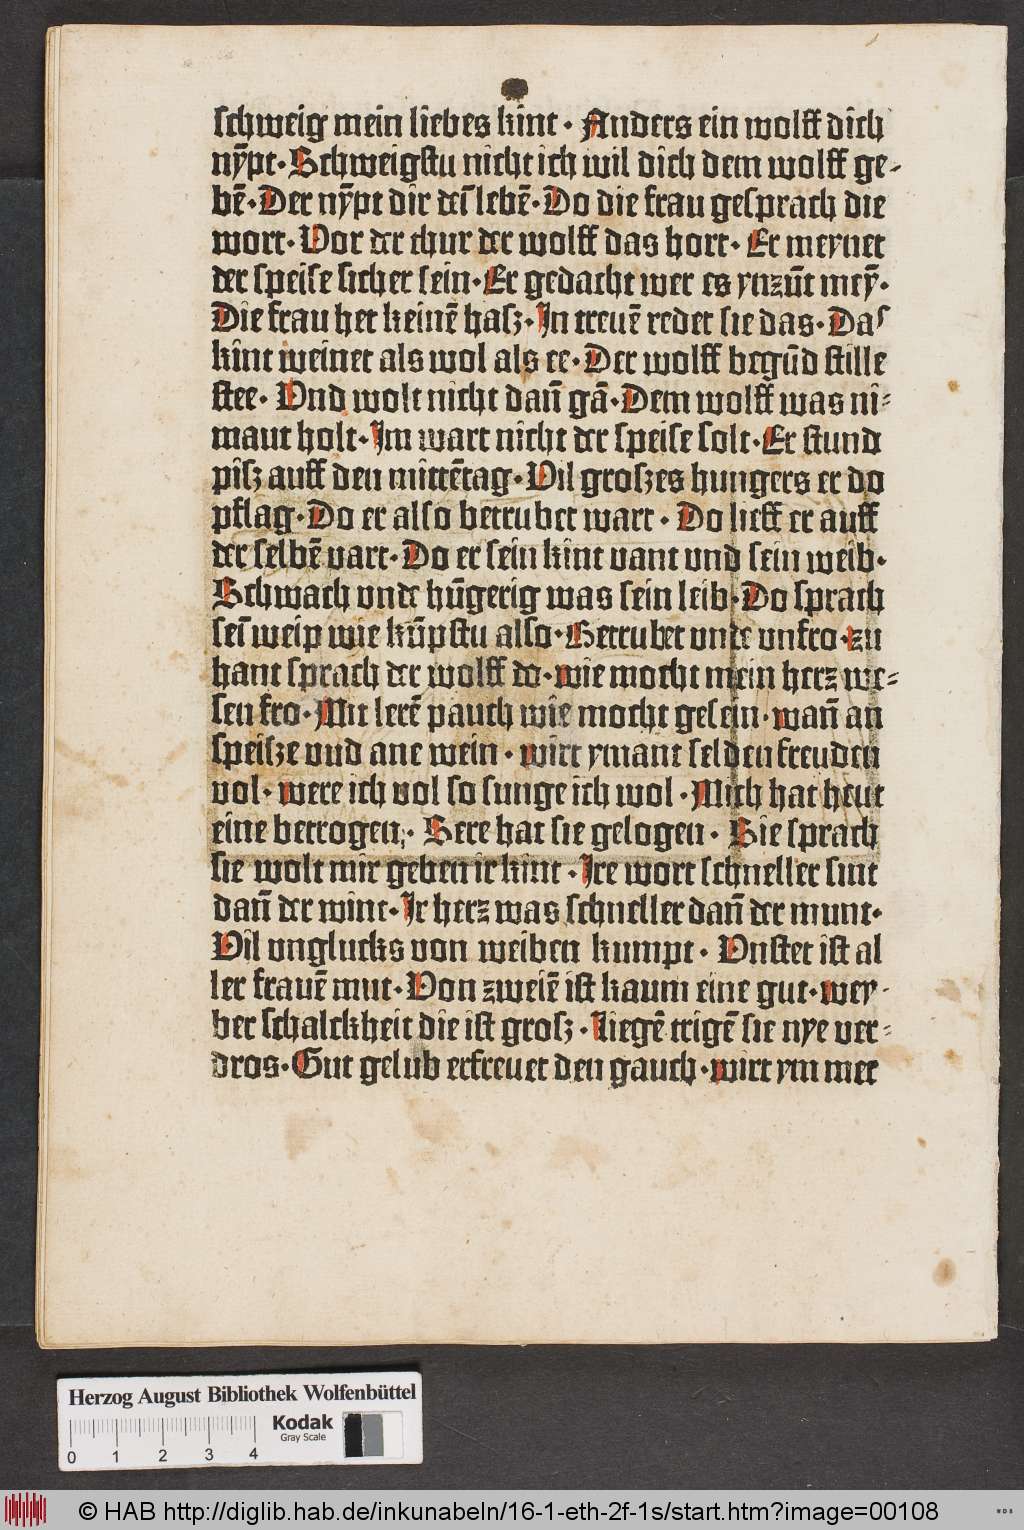 schweig mein liebes kint · Anders ein wolff dich
nÿ̄pt · Schweigstu nicht ich wil dich dem wolff ge-
bē · Der nȳpt dir deī lebē · Do die frau gesprach die
wort · Vor der thur der wolff das hort · Er meynet
der speise sicher sein · Er gedacht wer es ynzūt meȳ ·
Die frau het keinē hasz · In treuē redet sie das · Das
kint weinet als wol als ee · Der wolff begūd stille
stee · Vnd wolt nicht dan̄ gā · Dem wolff was ni-
mant holt · Im wart nicht der speise solt · Er stund
pisz auff den mittētag · Vil groszes hungers er do
pflag · Do er also betrubet wart · Do lieff er auff
der selbē vart · Do er sein kint vant vnd sein weib ·
Schwach vnde hūgerig was sein leib · Do sprach
seī weip wie kūpstu also · Betrubet vnde vnfro · zu
hant sprach der wolff do · wie mocht mein herz we-
sen fro · Mit lerē pauch wie mocht gesein · wan̄ an
speisze vnd ane wein · wirt ymant selden freuden
vol · were ich vol so sunge ich wol · Mich hat heut
eine betrogen · Sere hat sie gelogen · Sie sprach
sie wolt mir geben ir kint · Ire wort schneller sint
dan̄ der wint · Ir herz was schneller dan̄ der munt ·
Vil vnglucks von weiben kumpt · Vnstet ist al
ler frauē mut · Von zweiē ist kaum eine gut · wey-
ber schalckheit die ist grosz · liegē trigē sie nye ver-
dros · Gut gelub erfreuet den gauch · wirt ym mer
Herzog August Bibliothek Wolfenbüttel
Kodak
Gray Scale
0 1 2 3 4
© HAB http://diglib.hab.de/inkunabeln/16-1-eth-2f-1s/start.htm?image=00108